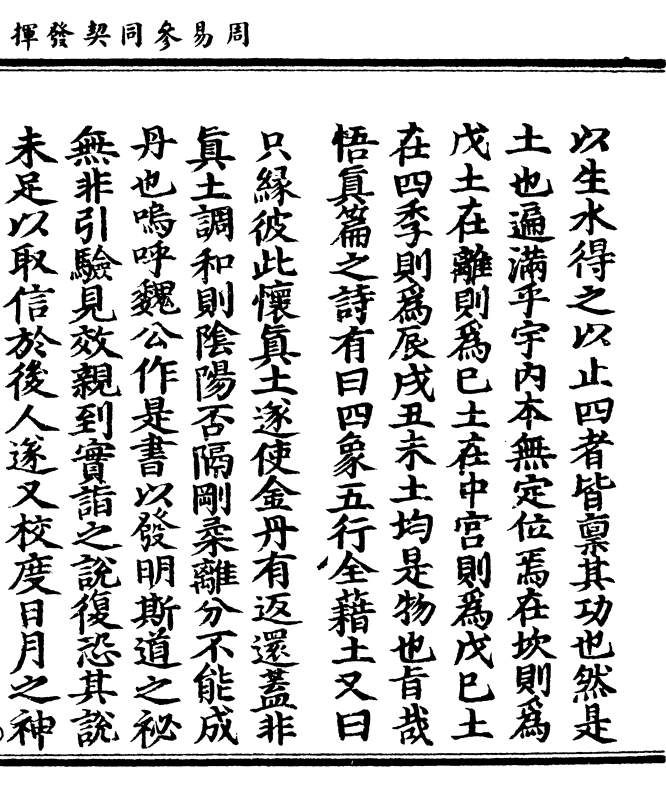 周易參同契發揮
以生水得之以止四者皆禀其功也然是
土也遍滿乎宇内本無定位焉在坎則爲
戊土在離則爲已土在中宫則爲戊已土
在四季則爲辰戌丑未土均是物也旨哉
悟眞篇之詩有曰四象五行全藉土又曰
只緣彼此懷眞土遂使金丹有返還蓋非
眞土調和則陰陽否隔剛柔離分不能成
丹也嗚呼魏公作是書以發明斯道之祕
無非引驗見效親到實詣之說復恐其說
未足以取信於後人遂又校度日月之神